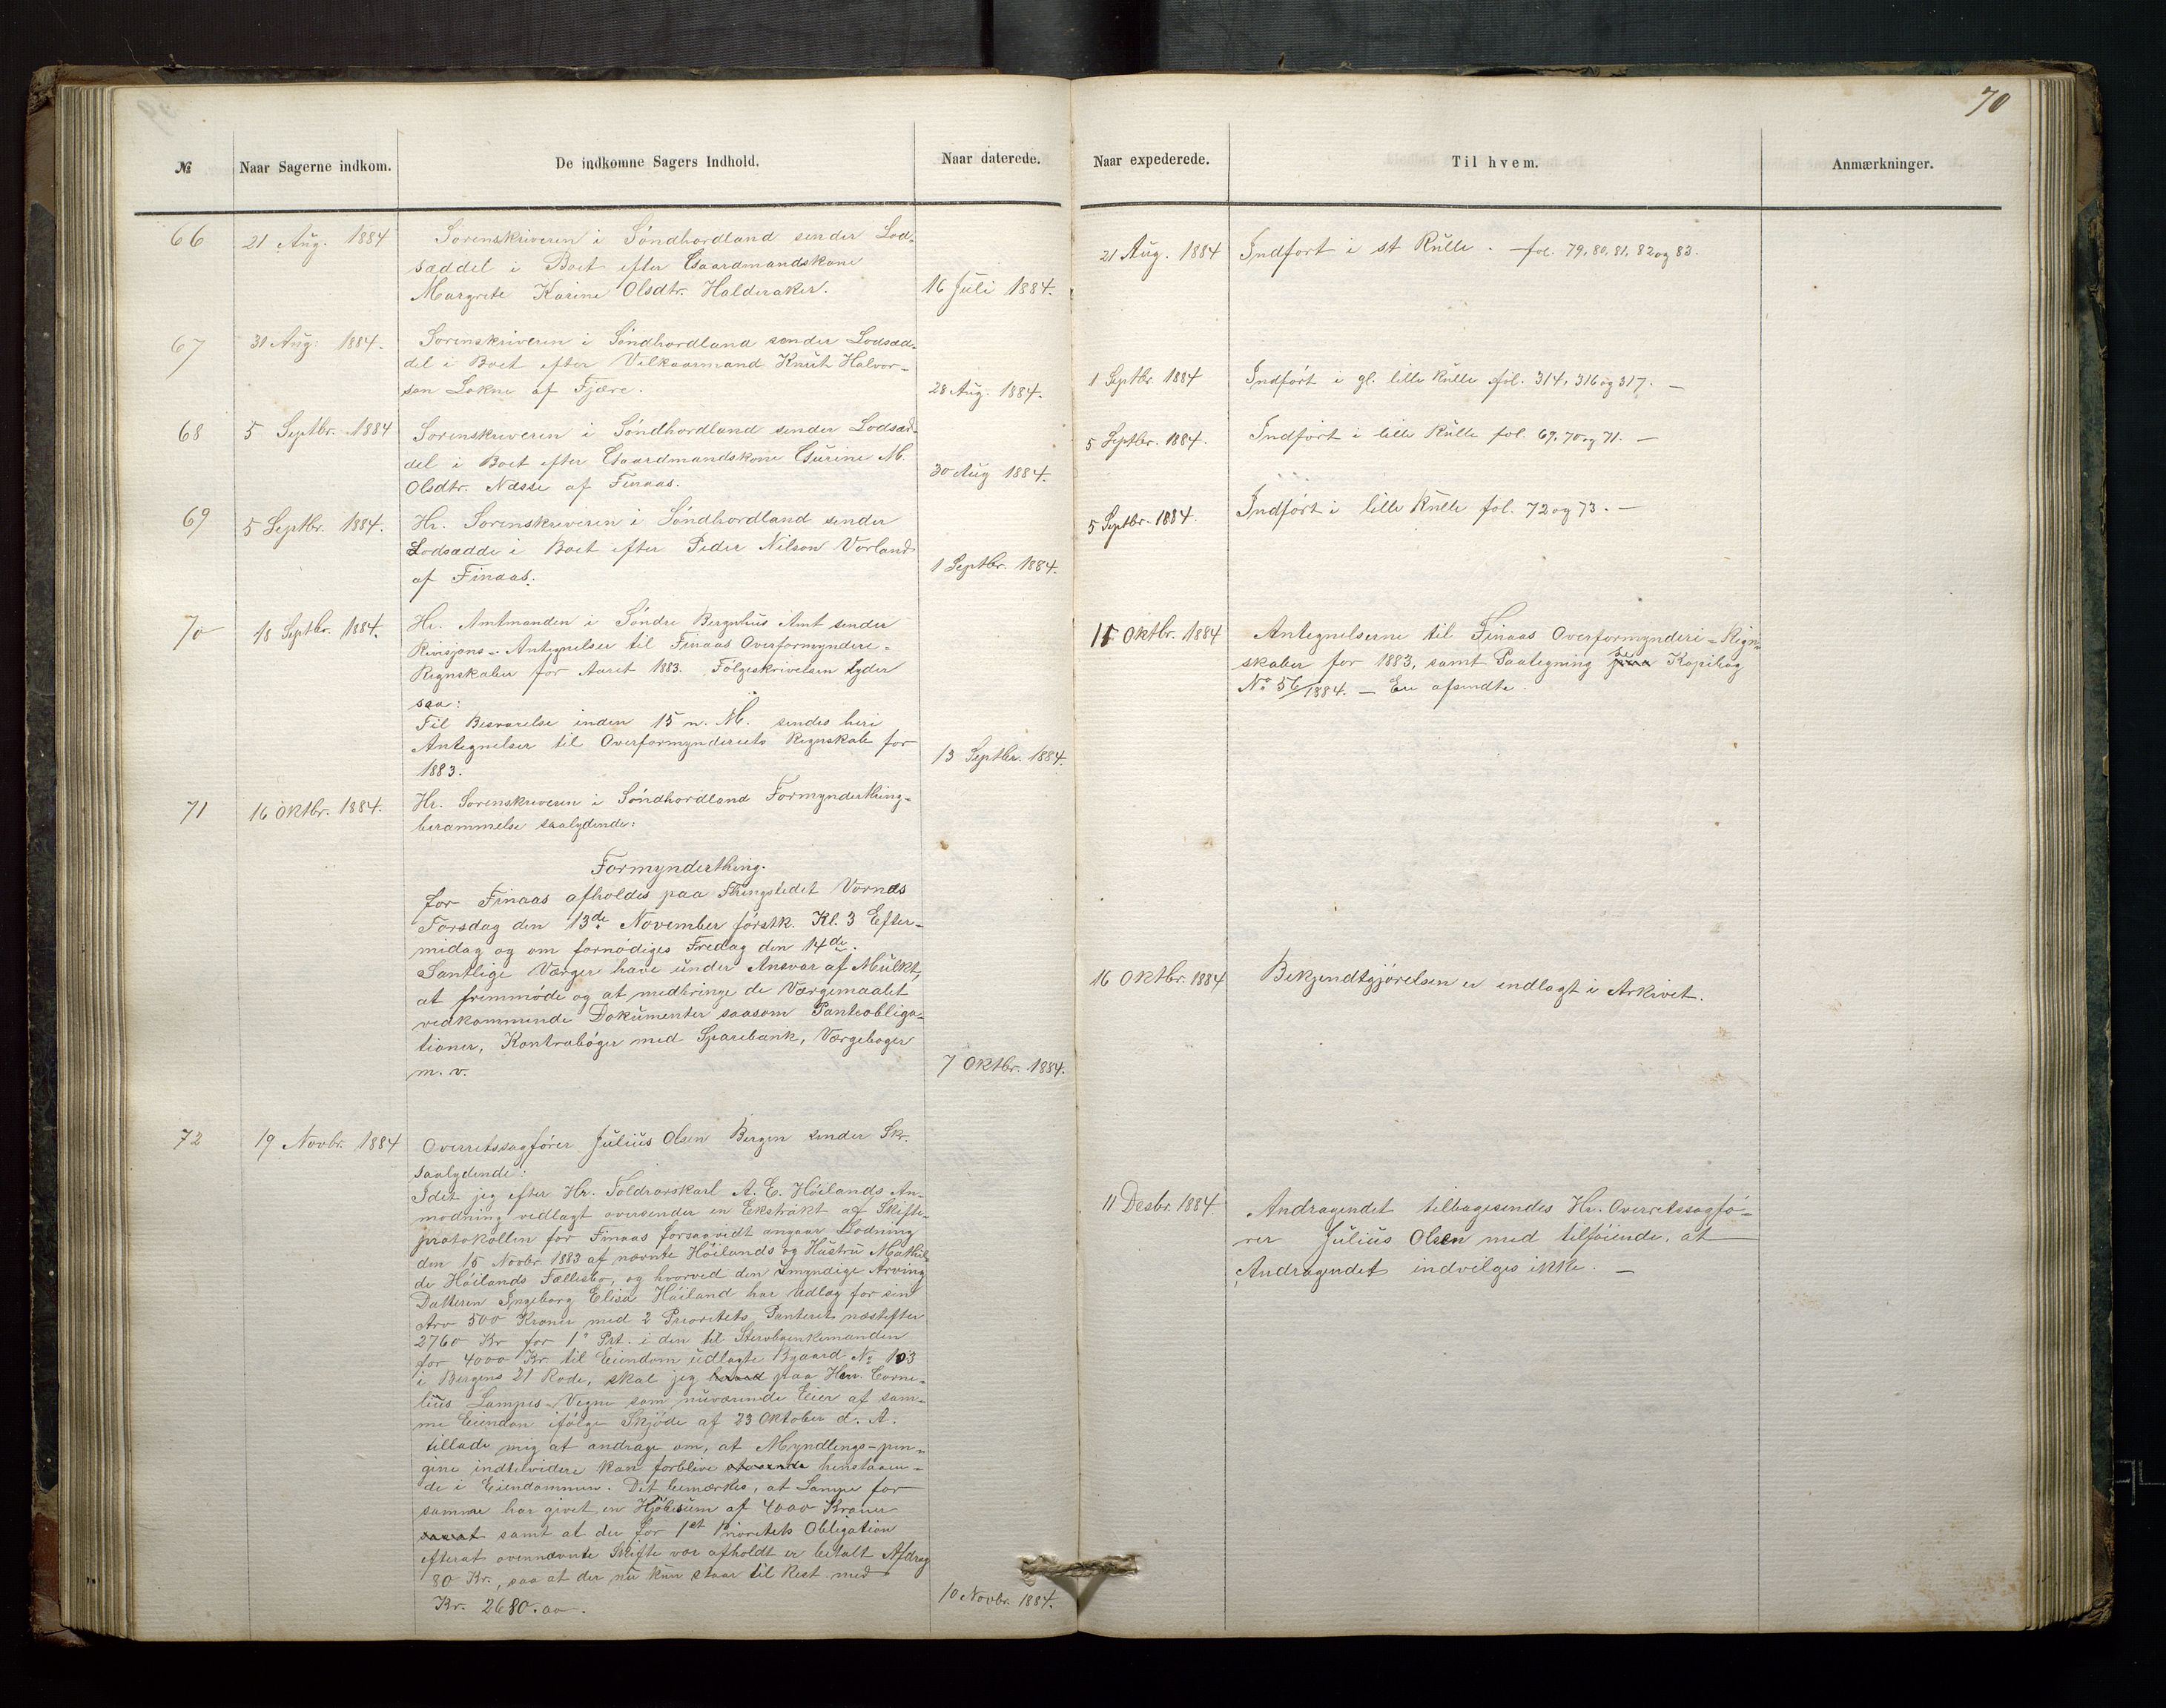 70
№ Naar Sagerne indkom. De indkomne Sagers Indhold. Naar daterede. Naar expederede. Til hvem. Anmærkninger.
66 21 Aug. 1884 Sorenskriveren i Söndhordland sender Lod-
sæddel i Boet efter Gaardmandskone
Margrete Karine Olsdtr. Halderaker. 16 Juli 1884.
21 Aug. 1884 Indfört i st Rulle. fol. 79, 80, 81, 82 og 83.
67 31 Aug. 1884. Sorenskriveren i Söndhordland sender Lodsæd-
del i Boet efter Vilkaarmand Knut Halvor-
son Lokne af Fjære. 28 Aug. 1884.
1 Septbr. 1884 Indfört i gl. lille Rulle fol. 314, 316 og 317. —
68 5 Septbr. 1884 Sorenskriveren i Söndhordland sender Lodsæd-
del i Boet efter Gaardmandskone Gurine M.
Olsdtr. Næsse af Finaas. 30 Aug 1884.
5 Septbr. 1884. Indfört i lille Rulle fol. 69, 70 og 71. —
69 5 Septbr. 1884. Hr. Sorenskriveren i Söndhordland sender
Lodsædde i Boet efter Peder Nilson Vorland
af Finaas. 1 Septbr. 1884.
5 Septbr. 1884. Indfört i lille Rulle fol. 72 og 73. —
70 18 Septbr. 1884. Hr. Amtmanden i Söndre Bergnhus Amt sender
Revisjons-Antegnelser til Finaas Overformynderi-
Regnskaber for Aaret 1883. Fölgeskrivelsen lyder
saa:
Til Besvarelse inden 15 n. M. sendes heri
Antegnelser til Overformynderiets Regnskab for
1883. 13 Septbr. 1884.
15 Oktbr. 1884 Antegnelserne til Finaas Overformynderi-Regn-
skaber for 1883, samt Paategning se Kopibog
No 56/1884. — Er afsendte.
71 16 Oktbr. 1884. Hr. Sorenskriveren i Söndhordland Formynderthing-
berammelse saalydende:
Formynderthing.
for Finaas afholdes paa Thingstedet Vornæs
Torsdag den 13de November förstk. Kl. 3 Efter-
midag og om fornödiges Fredag den 14de.
Samtlige Værger have under Ansvar af Mulkt,
at fremmöde og at medbringe de Værgemaalet
vedkommende Dokumenter saasom Panteobliga-
tioner, Kontraböger med Sparebank, Værgeboger
m. v. 7 Oktbr. 1884.
16 Oktbr. 1884 Bekjendtgjörelsen er indlagt i Arkivet.
72 19 Novbr. 1884 Overretssagförer Julius Olsen Bergen sender Skr.
saalydende:
Idet jeg efter Hr. Toldrorskarl A. E. Höilands An-
modning vedlagt oversender en Ekstrakt af Skifte-
protokollen for Finaas forsaavidt angaar Lodning
den 15 Novbr 1883 af nævnte Höilands og Hustru Mathil-
de Höilands Fællesbo, og hvorved den umyndige Arving
Datteren Ingeborg Elisa Höiland har Udlæg for sin
Arv 500 Kroner med 2 Prioritets Panteret næstefter
2760 Kr for 1ste Prt. i den til Stervboenkemanden
for 4000 Kr. til Eiendom udlagte Bgaard No 103
i Bergens 21 Rode, skal jeg paa Herr Corne-
lius Lampes Vegne som nuværende Eier af sam-
me Eiendom ifölge Skjöde af 23 Oktober d. A.
tillade mig at andrage om, at Myndlings-pen-
gene indtilvidere kan forblive henstaaen-
de i Eiendommen. Det bemærkes, at Lampe for
samme har givet en Kjöbesum af 4000 Kroner
samt at der for 1ste Prioritets Obligation
efterat ovennævnte Skifte var afholdt er betalt Afdrag
80 Kr., saa at der nu kun staar til Rest med
Kr. 2680.00. 10 Novbr. 1884.
11 Desbr. 1884. Andragendet tilbagesendes Hr. Overretssagfö-
rer Julius Olsen med tilföiende, at
Andragendet indvilges ikke. —